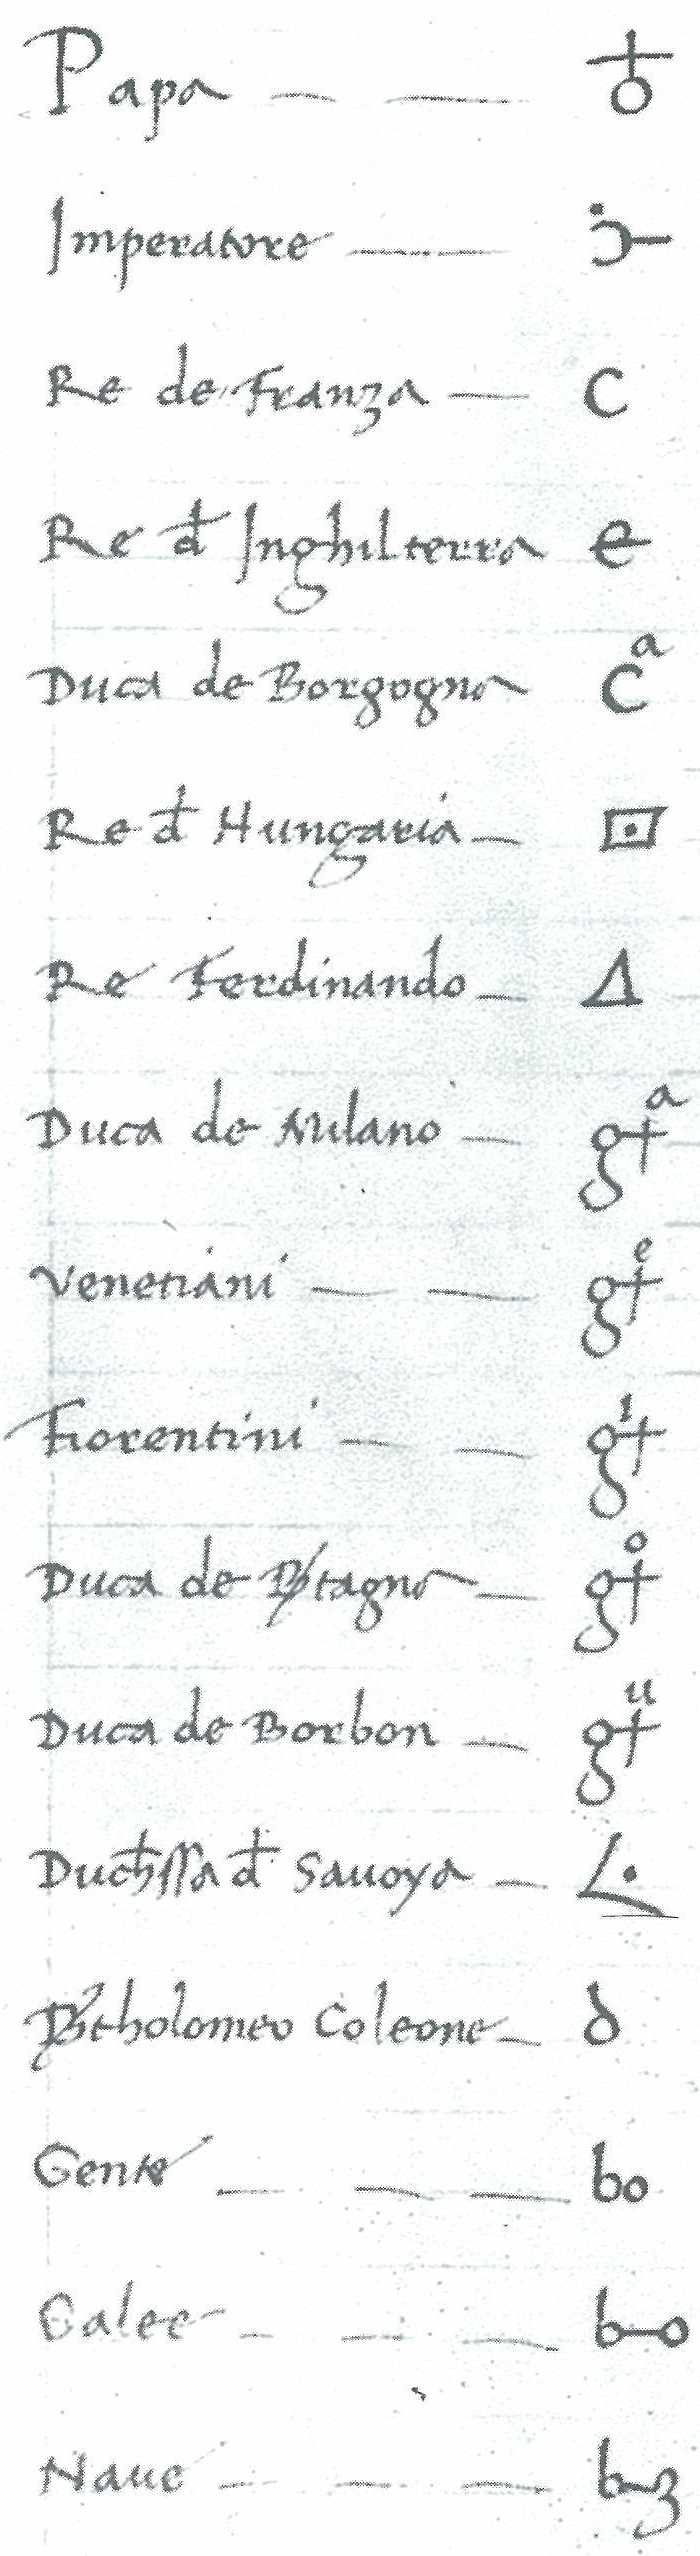 Papa — — ♁
Imperatore —
Re de Franza — C
Re đ Inghilterra e
Duca de Borgogna Cᵃ
Re đ Hungaria — ⊡
Re Ferdinando — Δ
Duca de Milano — g†ᵃ
Venetiani — — g†ᵉ
Fiorentini — — g†ⁱ
Duca de Bʳtagna — g†ᵒ
Duca de Borbon — g†ᵘ
Duchssa đ Savoya —
Btholomeo Coleone — d
Gente — — — bo
Galee — — — b-o
Nave — — — bʒ